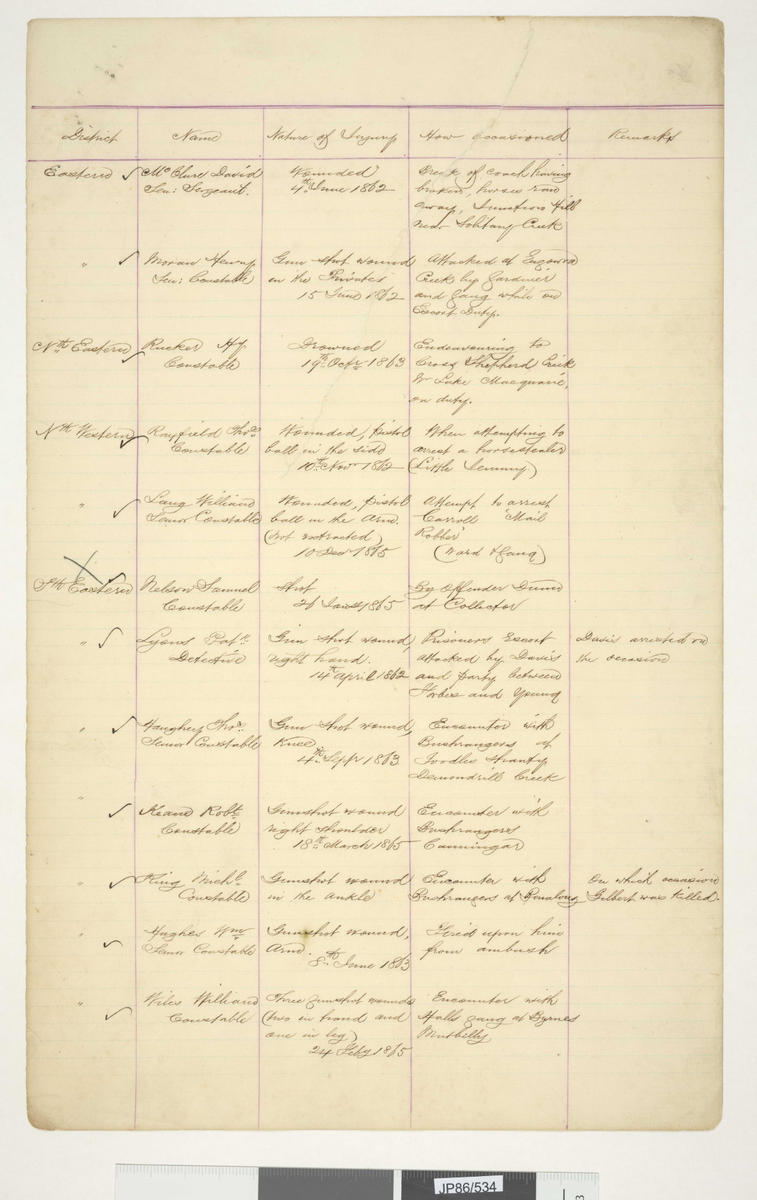 District Name Nature of Injury How occasioned Remarks
Eastern McClure David Wounded Creek of coach having
Sen: Sergeant. 4th June 1862 broken, horses ran
away, Junction Hill
near Solitary Creek
" Moran Henry Gun shot wound Attacked at Eugowra
Sen: Constable in the Privates Creek by Gardiner
15 June 1862 and Gang while on
Escort Duty.
Nth Eastern Rucker Hy Drowned Endeavouring to
Constable 19th Octr 1863 Cross Shepherd Creek
Nr Lake Macquarie,
on duty.
Nth Western Rayfield Thos Wounded, pistol When attempting to
Constable ball in the side arrest a horsestealer
10th Nov 1862 (Little Jemmy)
" Lang William Wounded, pistol Attempt to arrest
Senior Constable ball in the Arm. Carroll 'Mail
(not extracted) Robber'
10 Dec 1865 (Ward & Gang)
Sth Eastern Nelson Samuel Shot By Offender Dunn
Constable 26 Jany 1865 at Collector
" Lyons Patk Gun shot wound, Prisoners Escort Davis arrested on
Detective right hand. attacked by Davis the occasion
14th April 1862 and party between
Forbes and Young
" Haughey Thos Gun shot wound, Encounter with
Senior Constable Knee Bushrangers at
4th Septr 1863 Toodles Shanty
Demondrille Creek
" Keane Robt Gunshot wound Encounter with
Constable right shoulder Bushrangers
18th March 1865 Cunningar
" King Michl Gunshot wound Encounter with On which occasion
Constable in the ankle Bushrangers at Binalong Gilbert was killed.
" Hughes Wm Gunshot wound, Fired upon him
Senior Constable Arm. from ambush
8th June 1863
" Wiles William Three gunshot wounds Encounter with
Constable (two in hand and Halls gang at Byrnes
one in leg) Mutbilly
24 Feby 1865
JP86/534